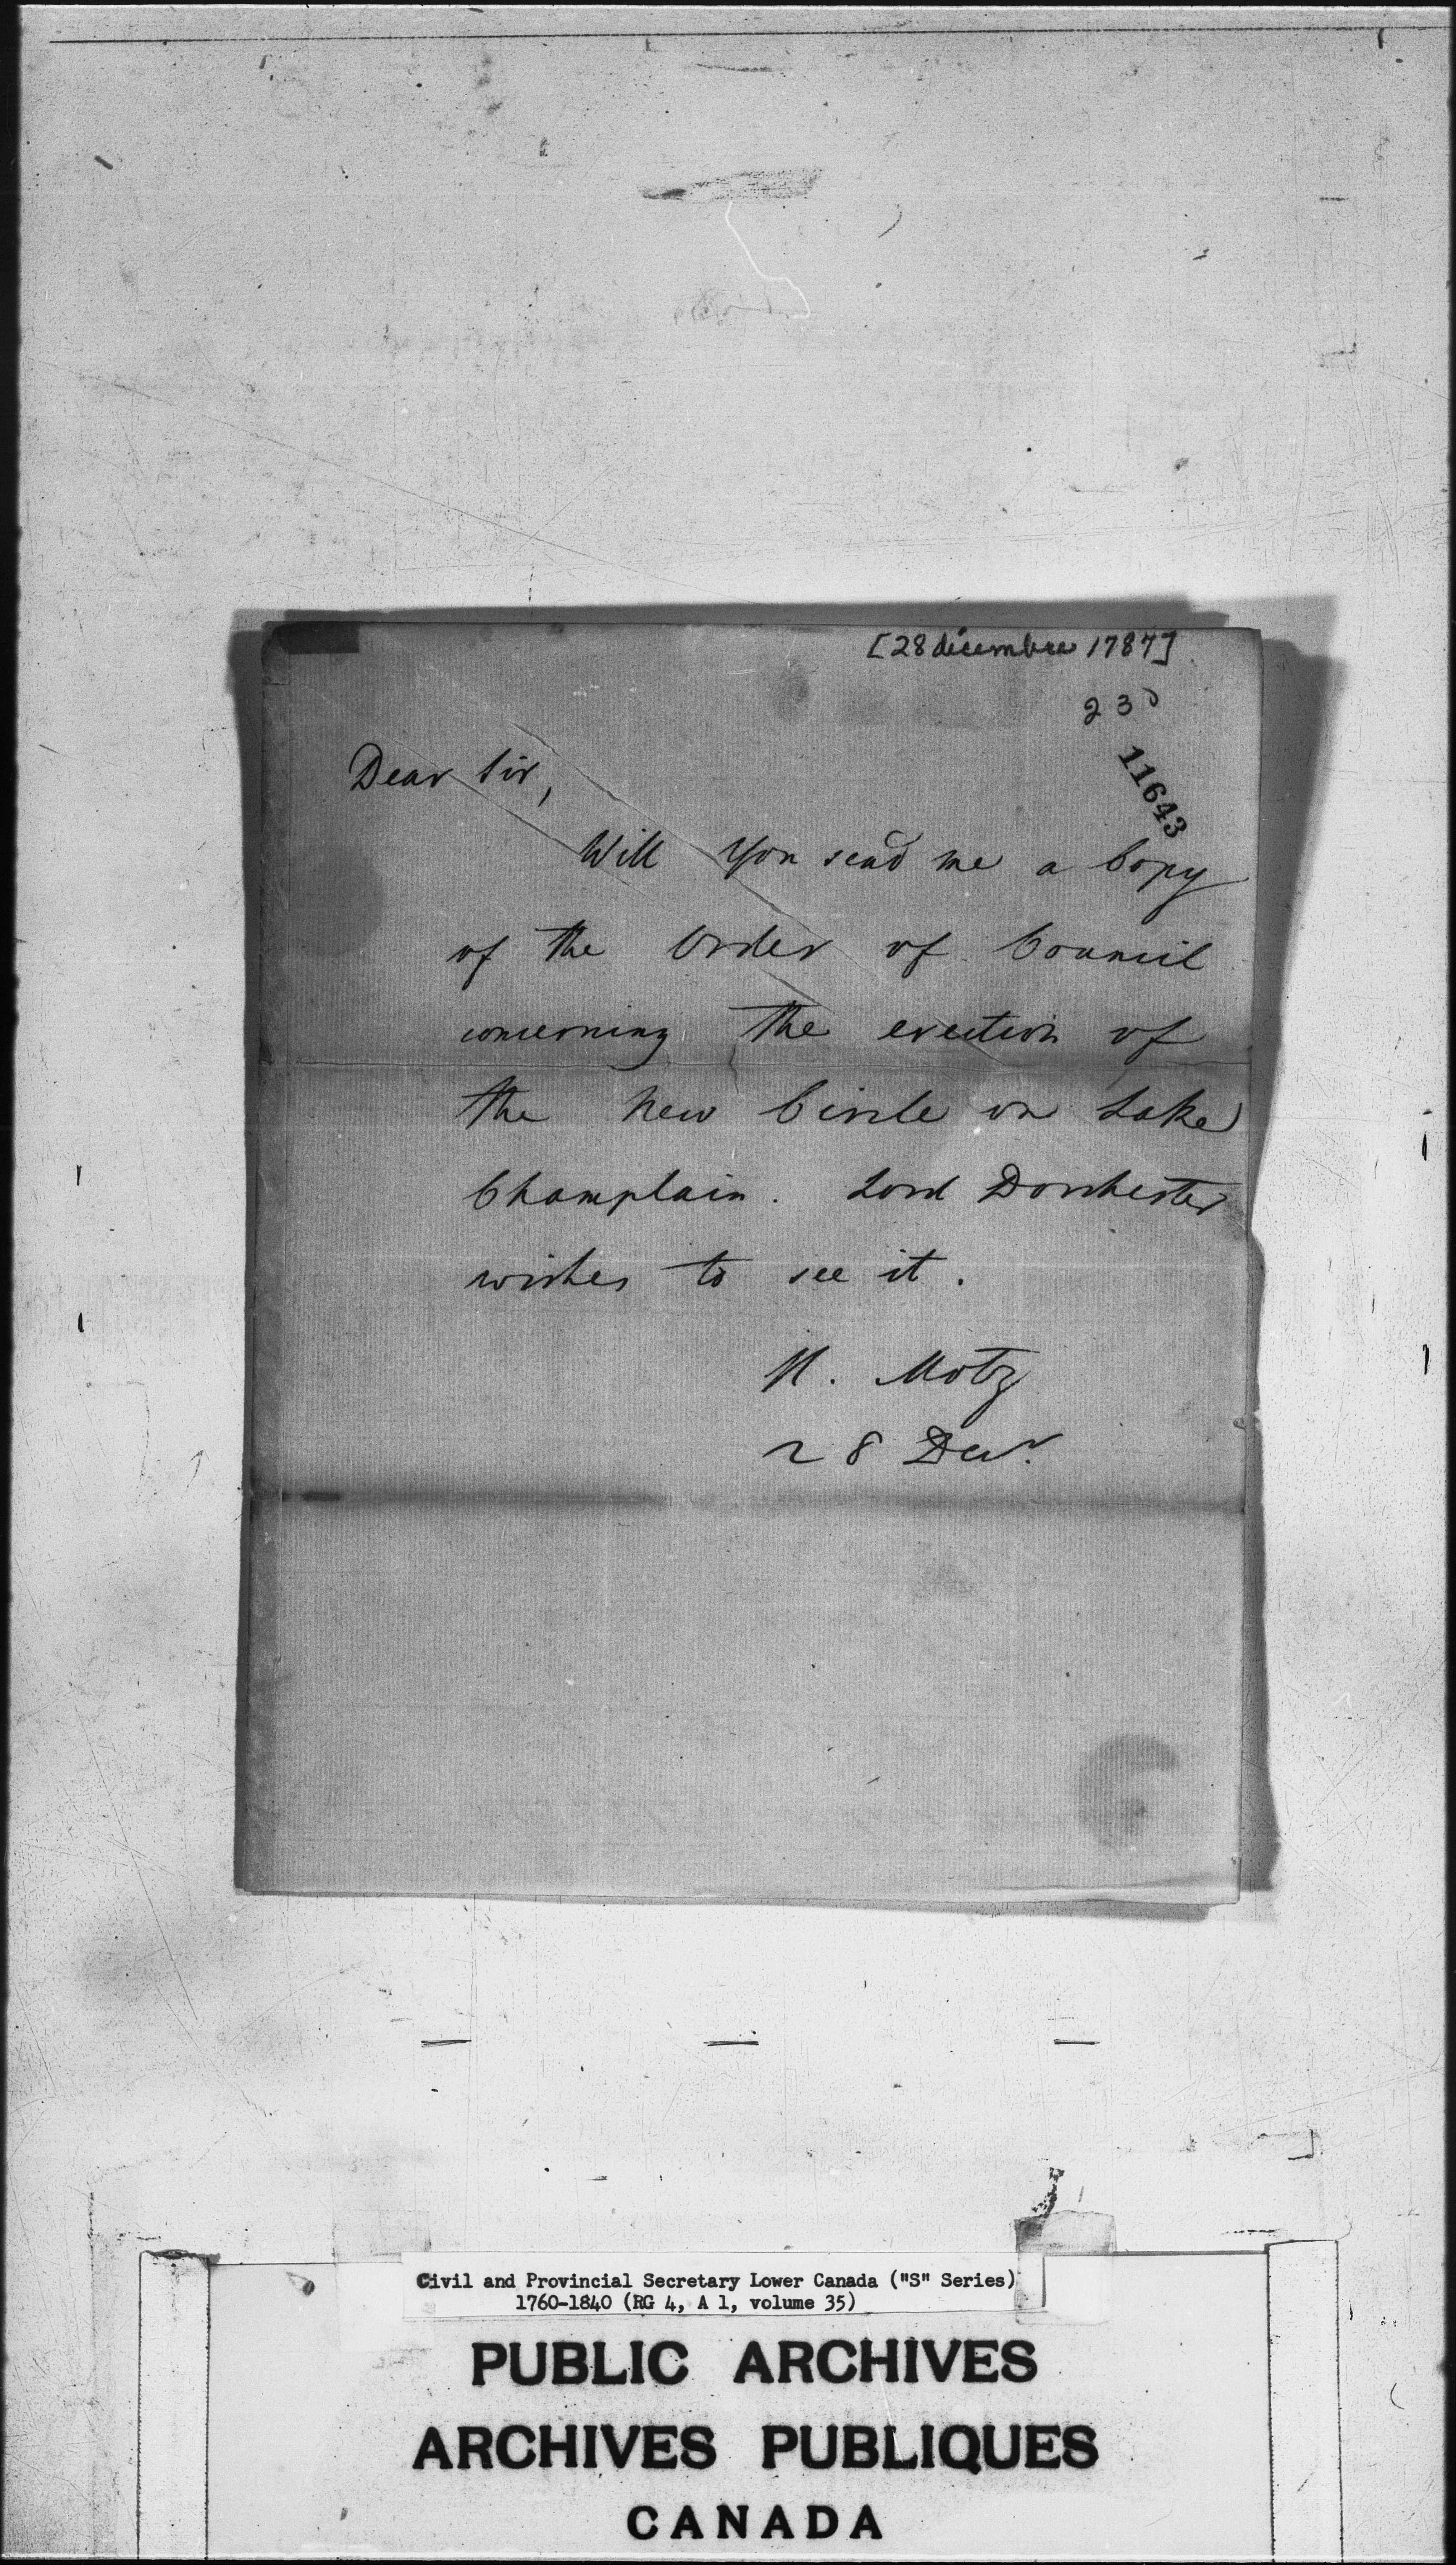 [28 décembre 1787]
23
11643
Dear Sir,
Will You send me a Copy
of the Order of Council
concerning the erection of
the new Circle on Lake
Champlain. Lord Dorchester
wishes to see it.
H. Motz
28 Decr.
Civil and Provincial Secretary Lower Canada ("S" Series)
1760-1840 (RG 4, A 1, volume 35)
PUBLIC ARCHIVES
ARCHIVES PUBLIQUES
CANADA